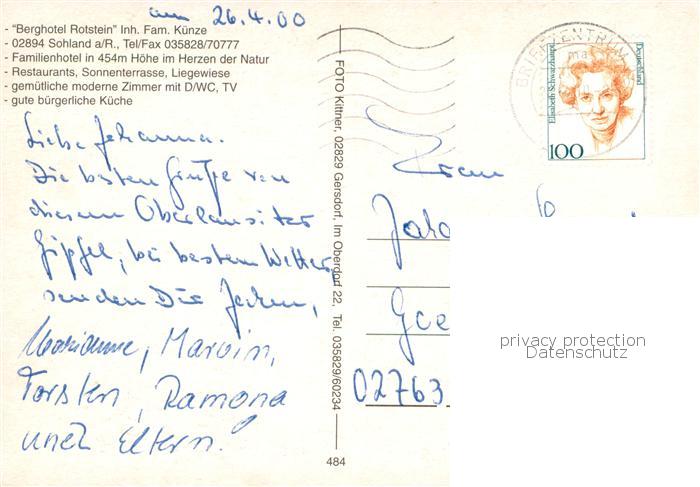 am 26.4.00
- "Berghotel Rotstein" Inh. Fam. Künze
- 02894 Sohland a/R., Tel/Fax 035828/70777
- Familienhotel in 454m Höhe im Herzen der Natur
- Restaurants, Sonnenterrasse, Liegewiese
- gemütliche moderne Zimmer mit D/WC, TV
- gute bürgerliche Küche
Liebe Johanna.
Die besten Grüße von
diesem Oberlausitzer
Gipfel, bei bestem Wetter
senden Dir
Marianne, Marvin,
Torsten, Ramona
und Eltern.
FOTO Kittner, 02829 Gersdorf, Im Oberdorf 22, Tel. 035829/60234
484
BRIEFZENTRUM
Elisabeth Schwarzhaupt
Deutschland
100
Frau
Joha
02763
privacy protection
Datenschutz